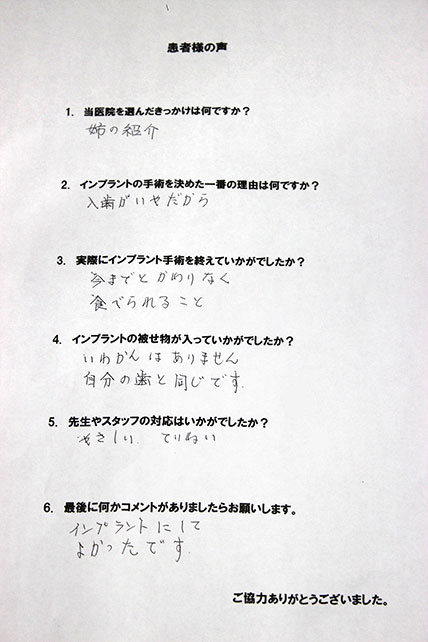 患者様の声
1. 当医院を選んだきっかけは何ですか？
姉の紹介
2. インプラントの手術を決めた一番の理由は何ですか？
入歯がいやだから
3. 実際にインプラント手術を終えていかがでしたか？
今までとかわりなく
食べられること
4. インプラントの被せ物が入っていかがでしたか？
いわかんはありません
自分の歯と同じです.
5. 先生やスタッフの対応はいかがでしたか？
やさしい. ていねい
6. 最後に何かコメントがありましたらお願いします。
インプラントにして
よかったです.
ご協力ありがとうございました。